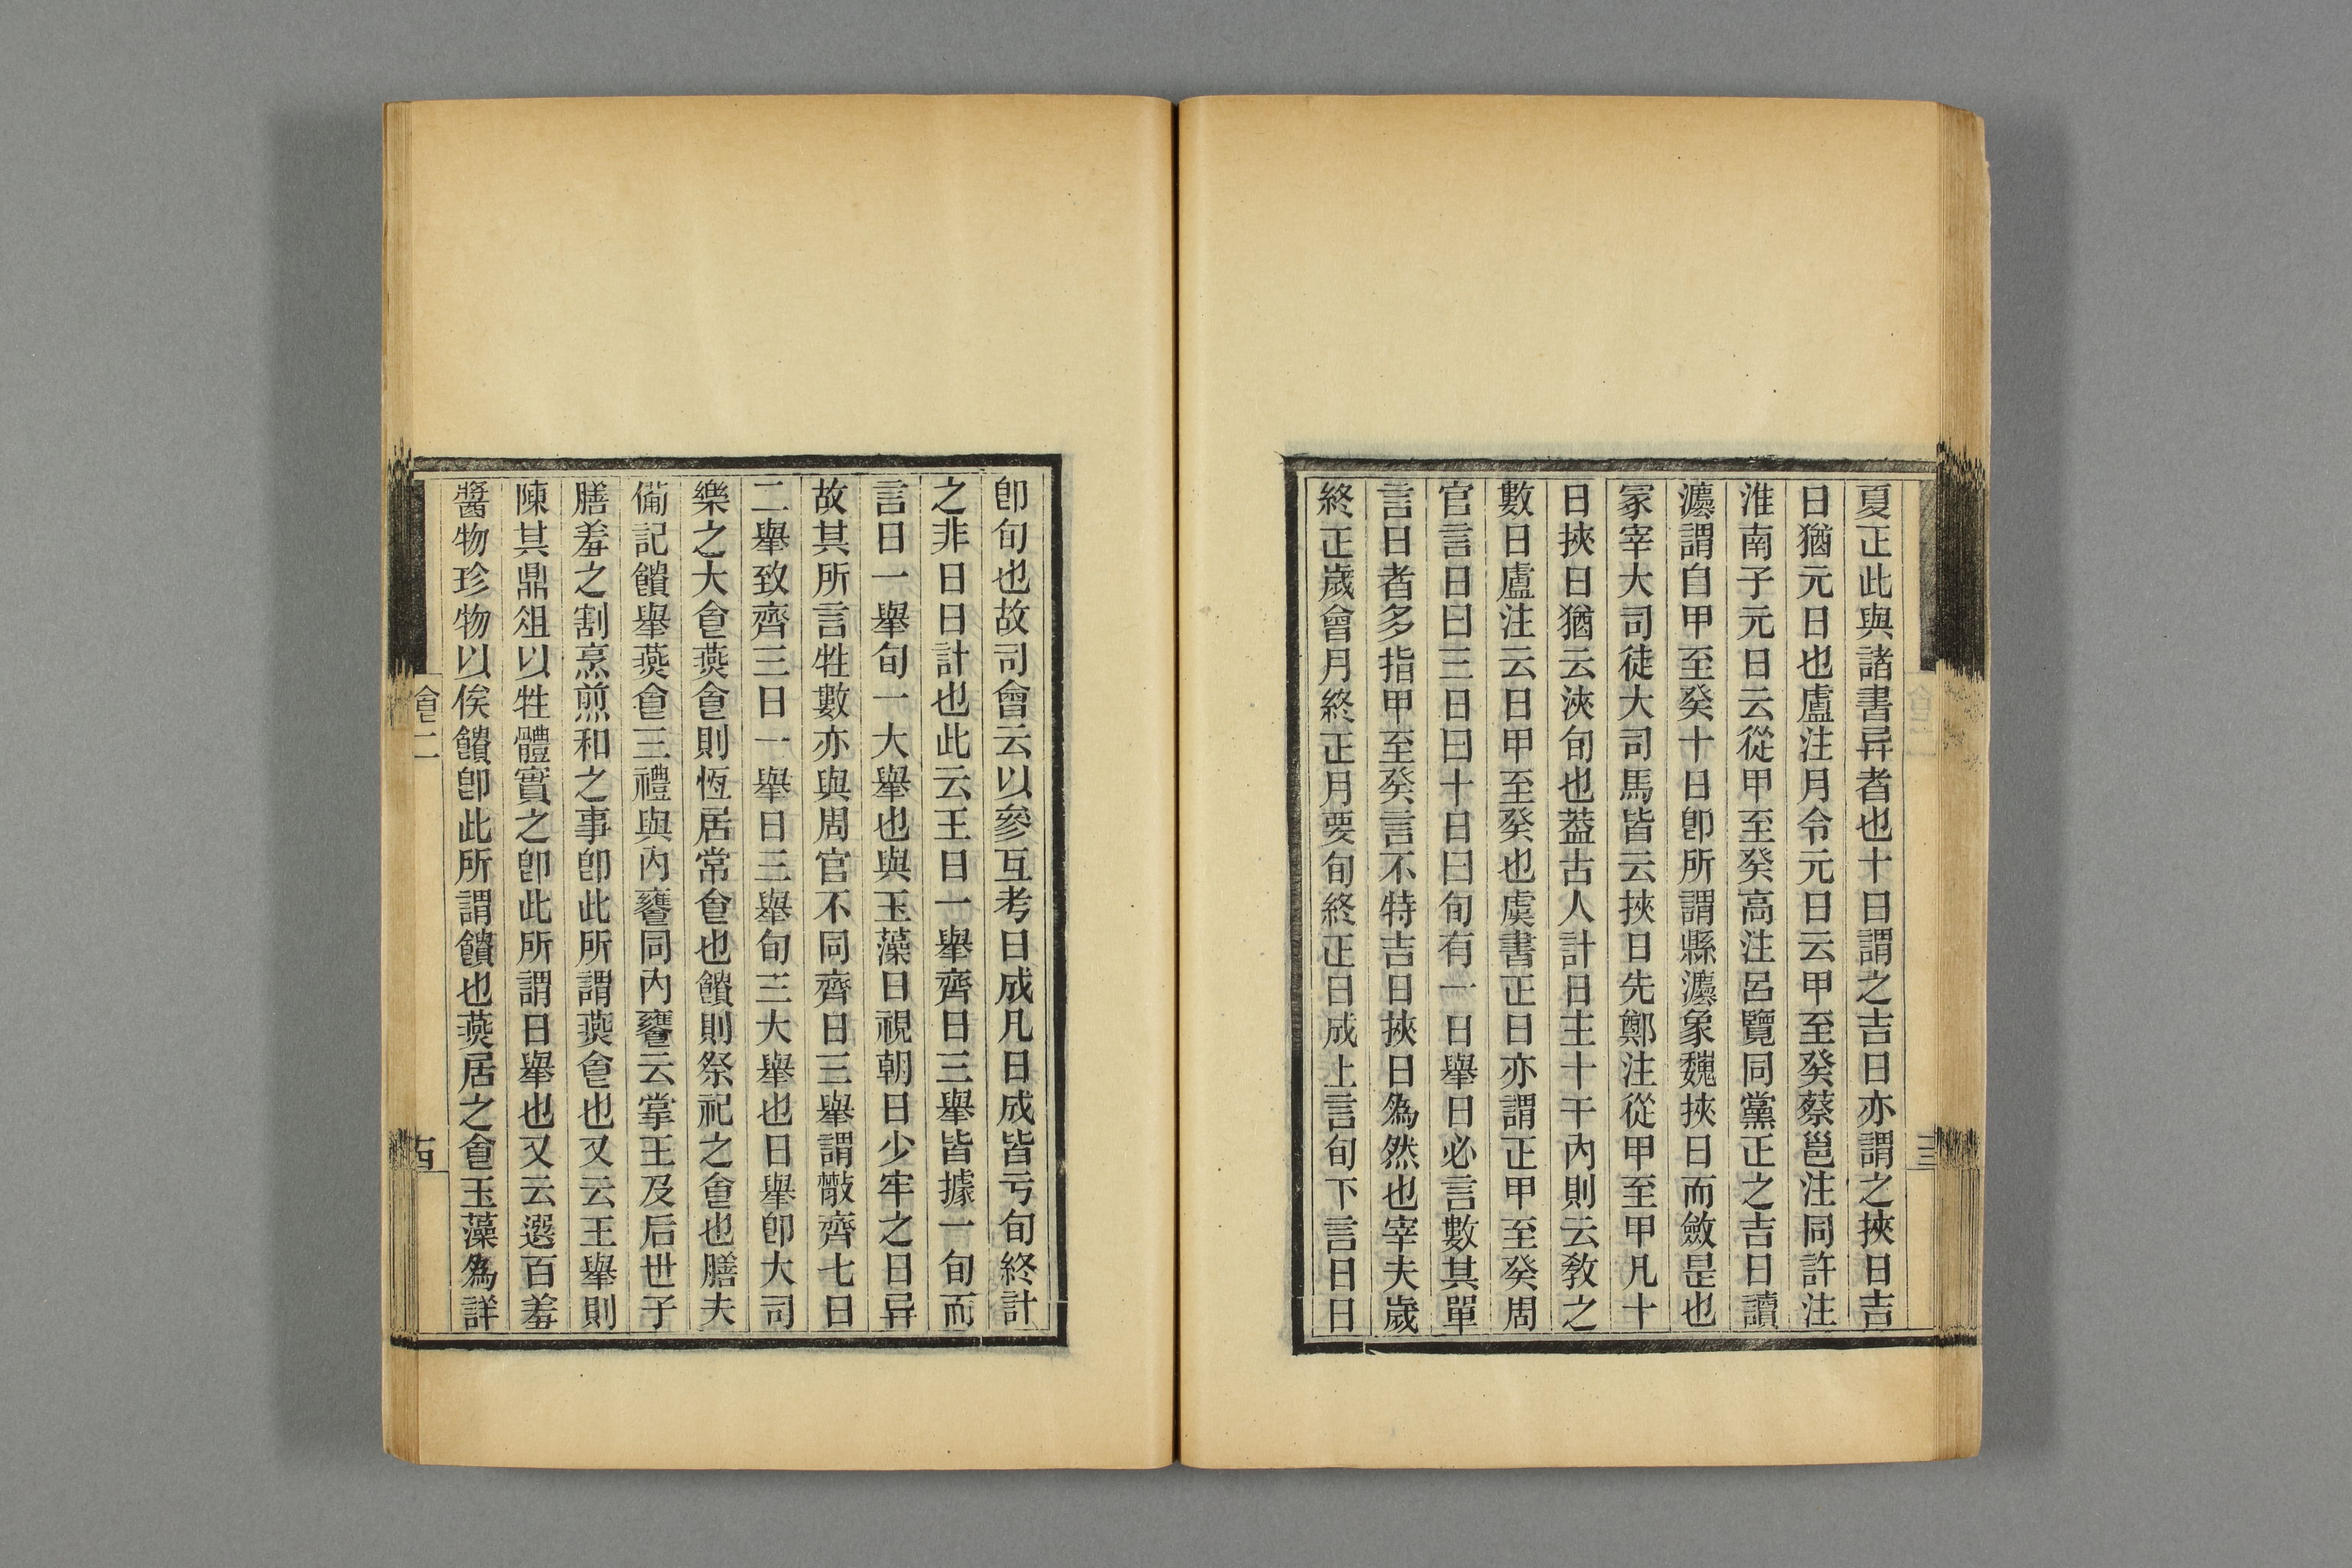 夏正此與諸書异者也十日謂之吉日亦謂之挾日吉
日猶元日也盧注月令元日云甲至癸蔡邕注同許注
淮南子元日云從甲至癸高注呂覽同黨正之吉日讀
灋謂自甲至癸十日卽所謂縣灋象魏挾日而斂是也
冢宰大司徒大司馬皆云挾日先鄭注從甲至甲凡十
日挾日猶云浹旬也葢古人計日主十干內則云敎之
數日盧注云日甲至癸也虞書正日亦謂正甲至癸周
官言日曰三日曰十日曰旬有一日舉日必言數其單
言日者多指甲至癸言不特吉日挾日為然也宰夫歲
終正歲會月終正月要旬終正日成上言旬下言日日
卽旬也故司會云以參互考日成凡日成皆亏旬終計
之非日日計也此云王日一舉齊日三舉皆據一旬而
言日一舉旬一大舉也與玉藻日視朝日少牢之日异
故其所言牲數亦與周官不同齊日三舉謂散齊七日
二舉致齊三日一舉日三舉旬三大舉也日舉卽大司
樂之大食燕食則恆居常食也饋則祭祀之食也膳夫
備記饋舉燕食三禮與內饔同內饔云掌王及后世子
膳羞之割烹煎和之事卽此所謂燕食也又云王舉則
陳其鼎俎以牲體實之卽此所謂日舉也又云選百羞
醬物珍物以俟饋卽此所謂饋也燕居之食玉藻為詳
食二